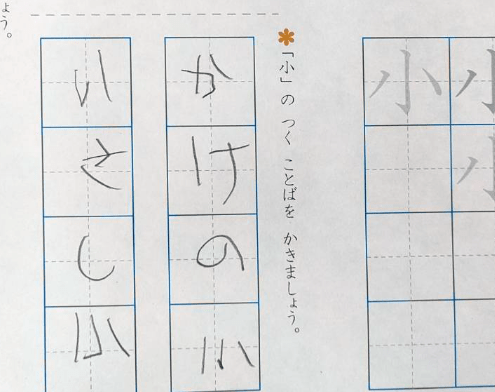 小小
小
「小」の つく ことばを かきましょう。
かけの小
小さし
ょう。